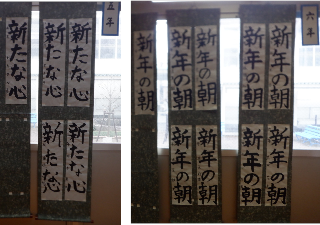 五年
新たな心
新たな心
新たな心
新たな心
新たな心
六年
新年の朝
新年の朝
新年の朝
新年の朝
新年の朝
新年の朝
新年の朝
新年の朝
新年の朝